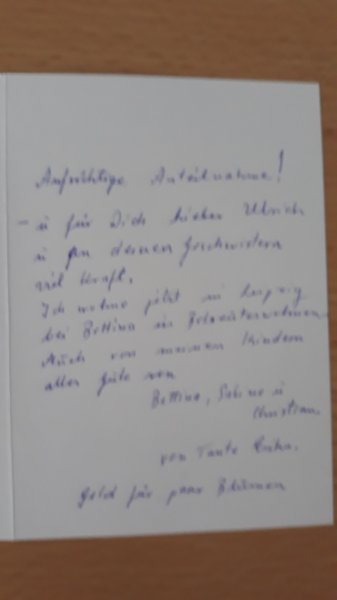 Aufrichtige Anteilnahme!
– u für Dich lieber Ulrich
u an deinen Geschwistern
viel Kraft.
Ich wohne jetzt in Leipzig
bei Bettina im Betreutenwohnen.
Auch von meinen Kindern
alles Gute von
Bettina, Sabine u
Christian.
von Tante
Geld für paar Blumen